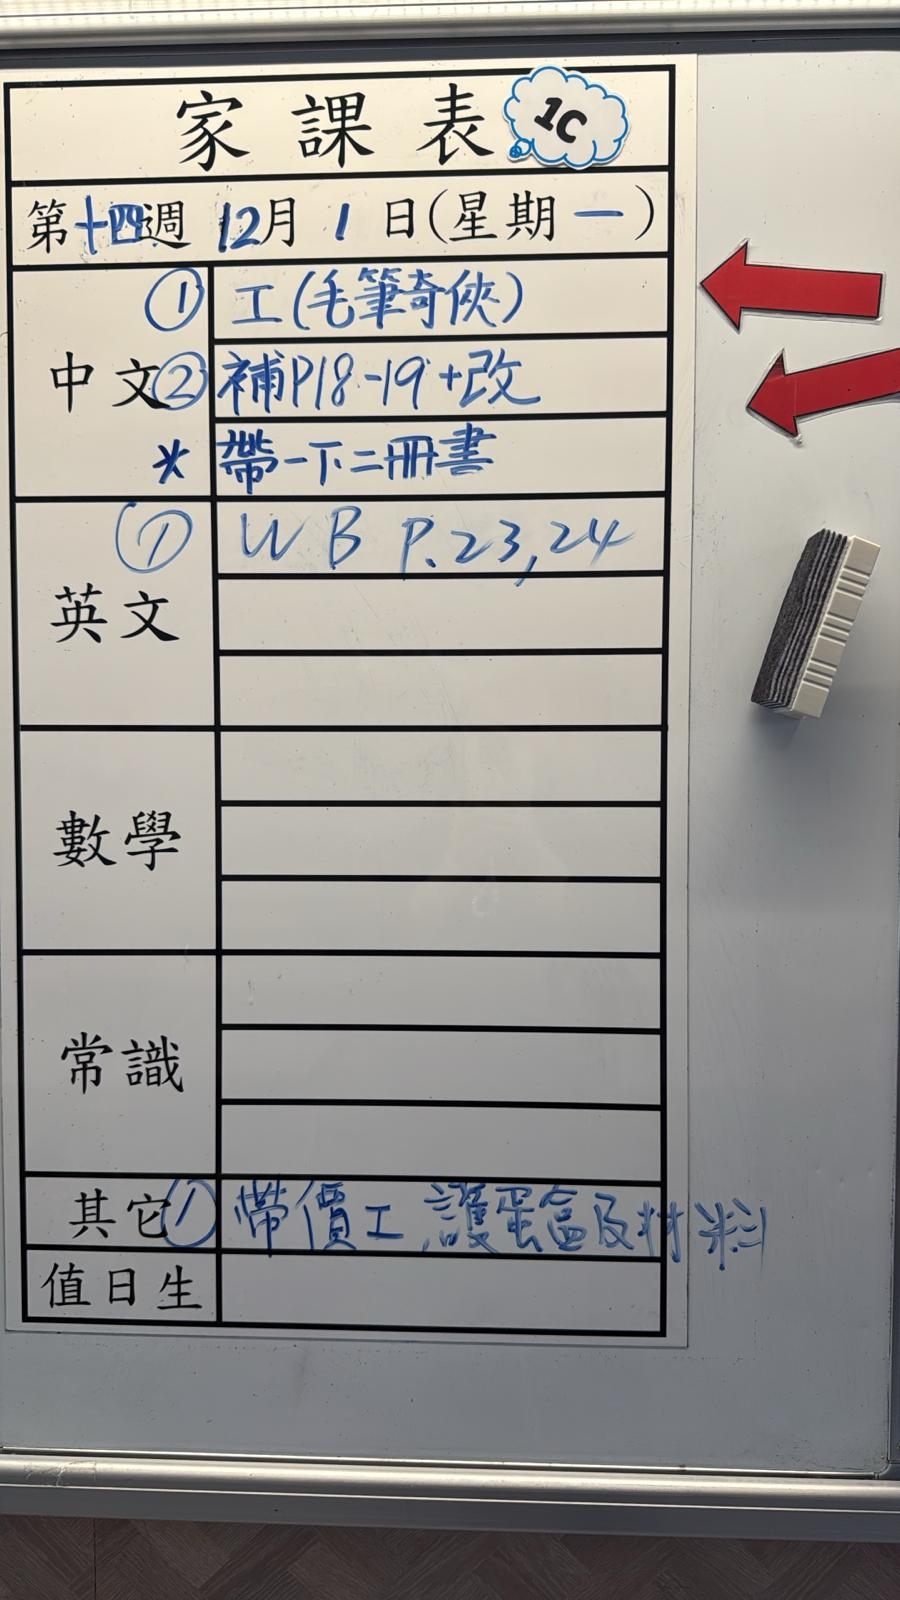 家課表 1C
第十四週 12月1日(星期一)
中文
① 工(毛筆奇俠)
② 補P18-19+改
* 帶一下二冊書
英文
① WB P.23,24
數學
常識
其它 ① 帶價工 護蛋盒及材料
值日生